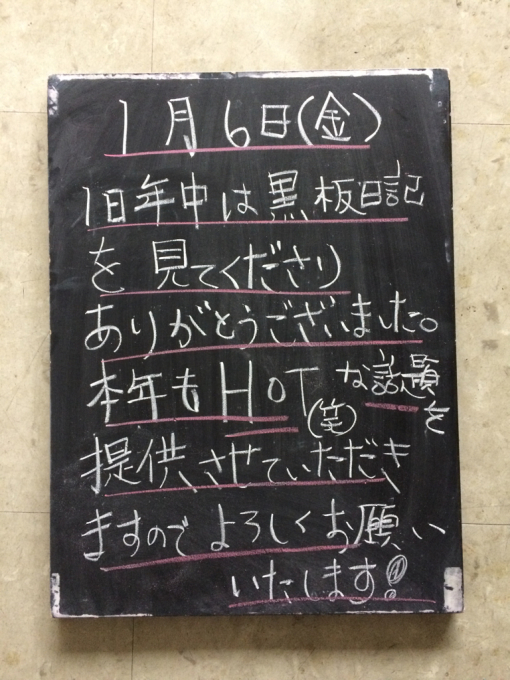 1月6日(金)
旧年中は黒板日記
を見てくださり
ありがとうございました。
本年もHOTな話題を
(笑)
提供させていただき
ますのでよろしくお願い
いたします!